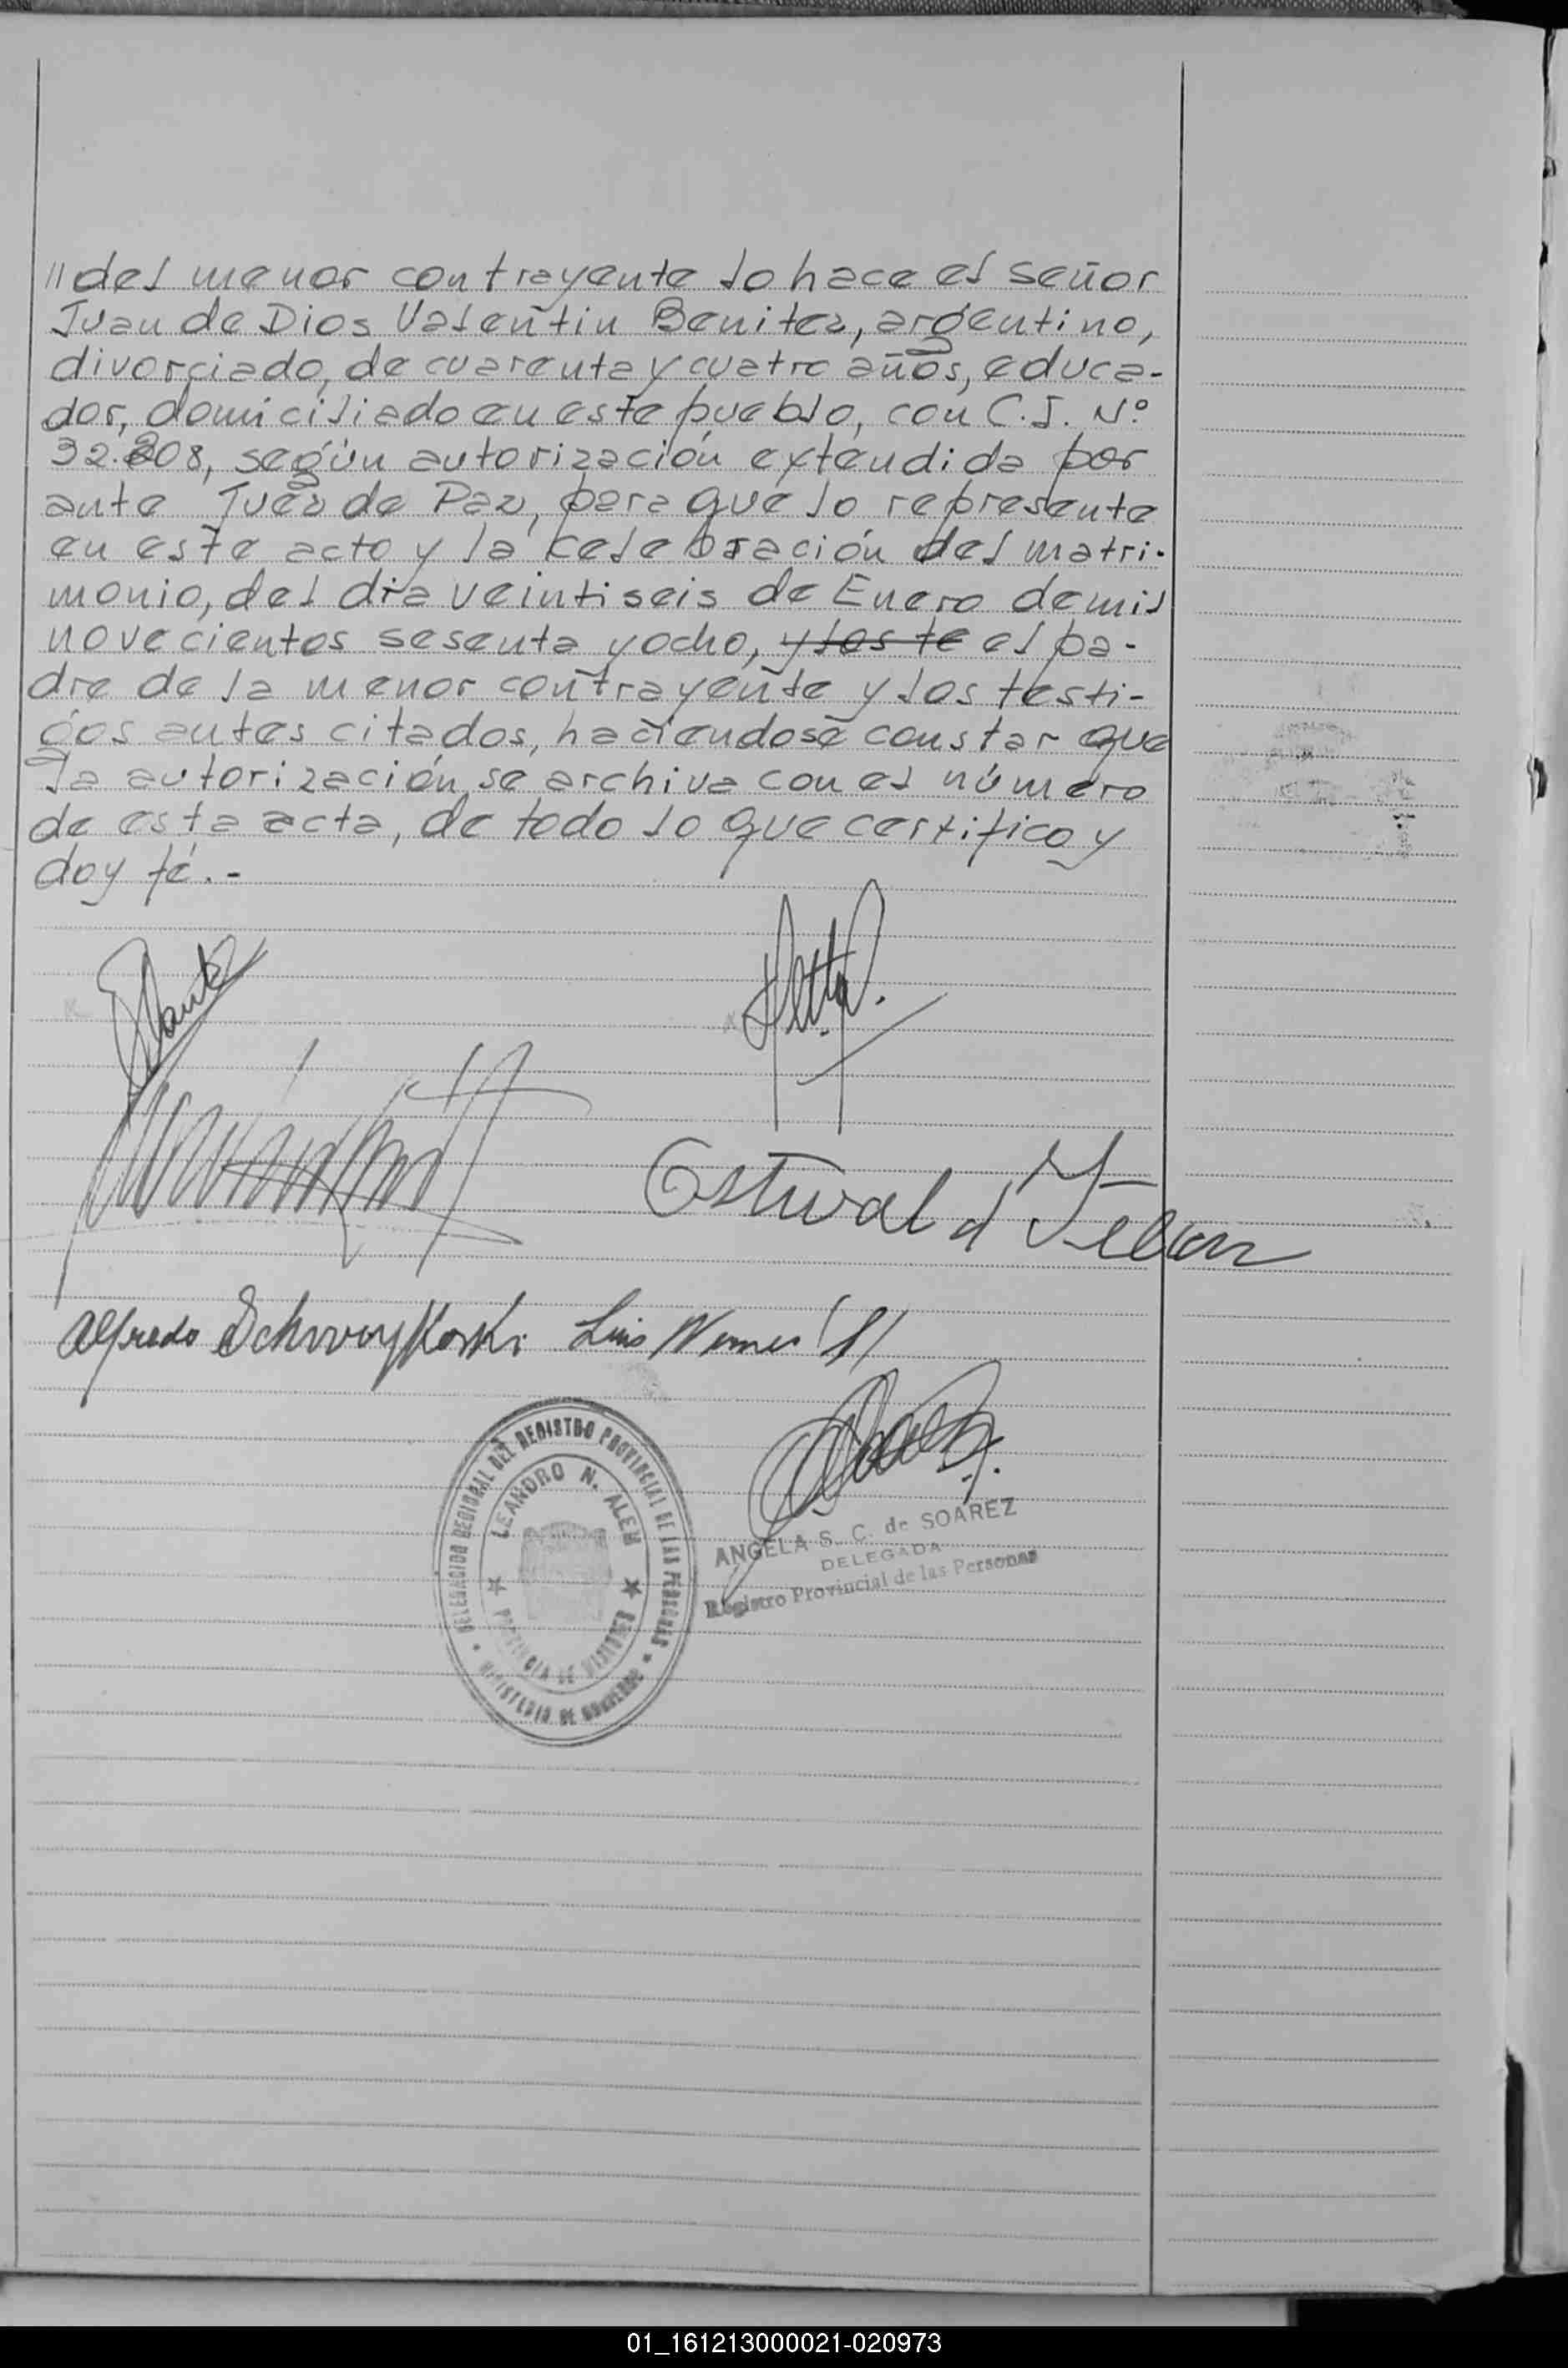 //del menor contrayente lo hace el señor
Juan de Dios Valentin Benitez, argentino,
divorciado, de cuarenta y cuatro años, educa-
dor, domiciliado en este pueblo, con C.I. Nº
32.808, según autorización extendida por
ante Juéz de Paz, para que lo represente
en este acto y la celebración del matri-
monio, del dia veintiseis de Enero de mil
novecientos sesenta y ocho, y los te el pa-
dre de la menor contrayente y los testi-
gos antes citados, haciendose constar que
la autorización se archiva con el número
de esta acta, de todo lo que certifico y
doy fé.-
Alfredo Schwoykoski Luis Werner
DELEGACION REGIONAL DEL REGISTRO PROVINCIAL DE LAS PERSONAS
LEANDRO N. ALEM
PROVINCIA DE MISIONES
MINISTERIO DE GOBIERNO
ANGELA S. C. de SOAREZ
DELEGADA
Registro Provincial de las Personas
01_161213000021-020973